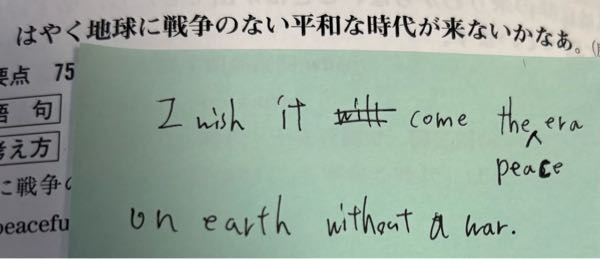 はやく地球に戦争のない平和な時代が来ないかなあ。
要点 75
語 句
考え方
に戦争の
I wish it will come the era
peace
on earth without a war.
peacefu